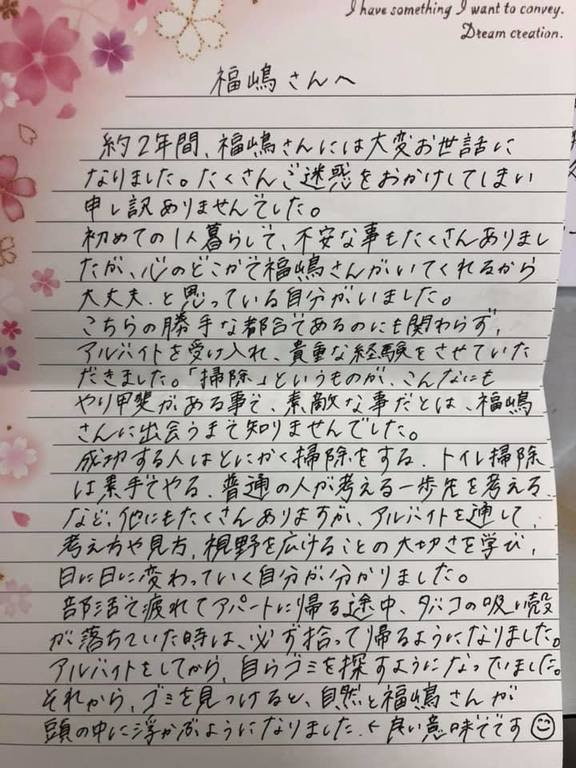 I have something I want to convey.
Dream creation.
福嶋さんへ
約2年間、福嶋さんには大変お世話に
なりました。たくさんご迷惑をおかけしてしまい
申し訳ありませんでした。
初めての1人暮らしで、不安な事もたくさんありまし
たが、心のどこかで福嶋さんがいてくれるから
大丈夫、と思っている自分がいました。
こちらの勝手な都合であるのにも関わらず、
アルバイトを受け入れ、貴重な経験をさせていた
だきました。「掃除」というものが、こんなにも
やり甲斐がある事で、素敵な事だとは、福嶋
さんに出会うまで知りませんでした。
成功する人はとにかく掃除をする、トイレ掃除
は素手でやる、普通の人が考える一歩先を考える、
など、他にもたくさんありますが、アルバイトを通して、
考え方や見方、視野を広げることの大切さを学び、
日に日に変わっていく自分が分かりました。
部活で疲れてアパートに帰る途中、タバコの吸い殻
が落ちていた時は、必ず拾って帰るようになりました。
アルバイトをしてから、自らゴミを探すようになっていました。
それから、ゴミを見つけると、自然と福嶋さんが
頭の中に浮かぶようになりました。←良い意味でです☺